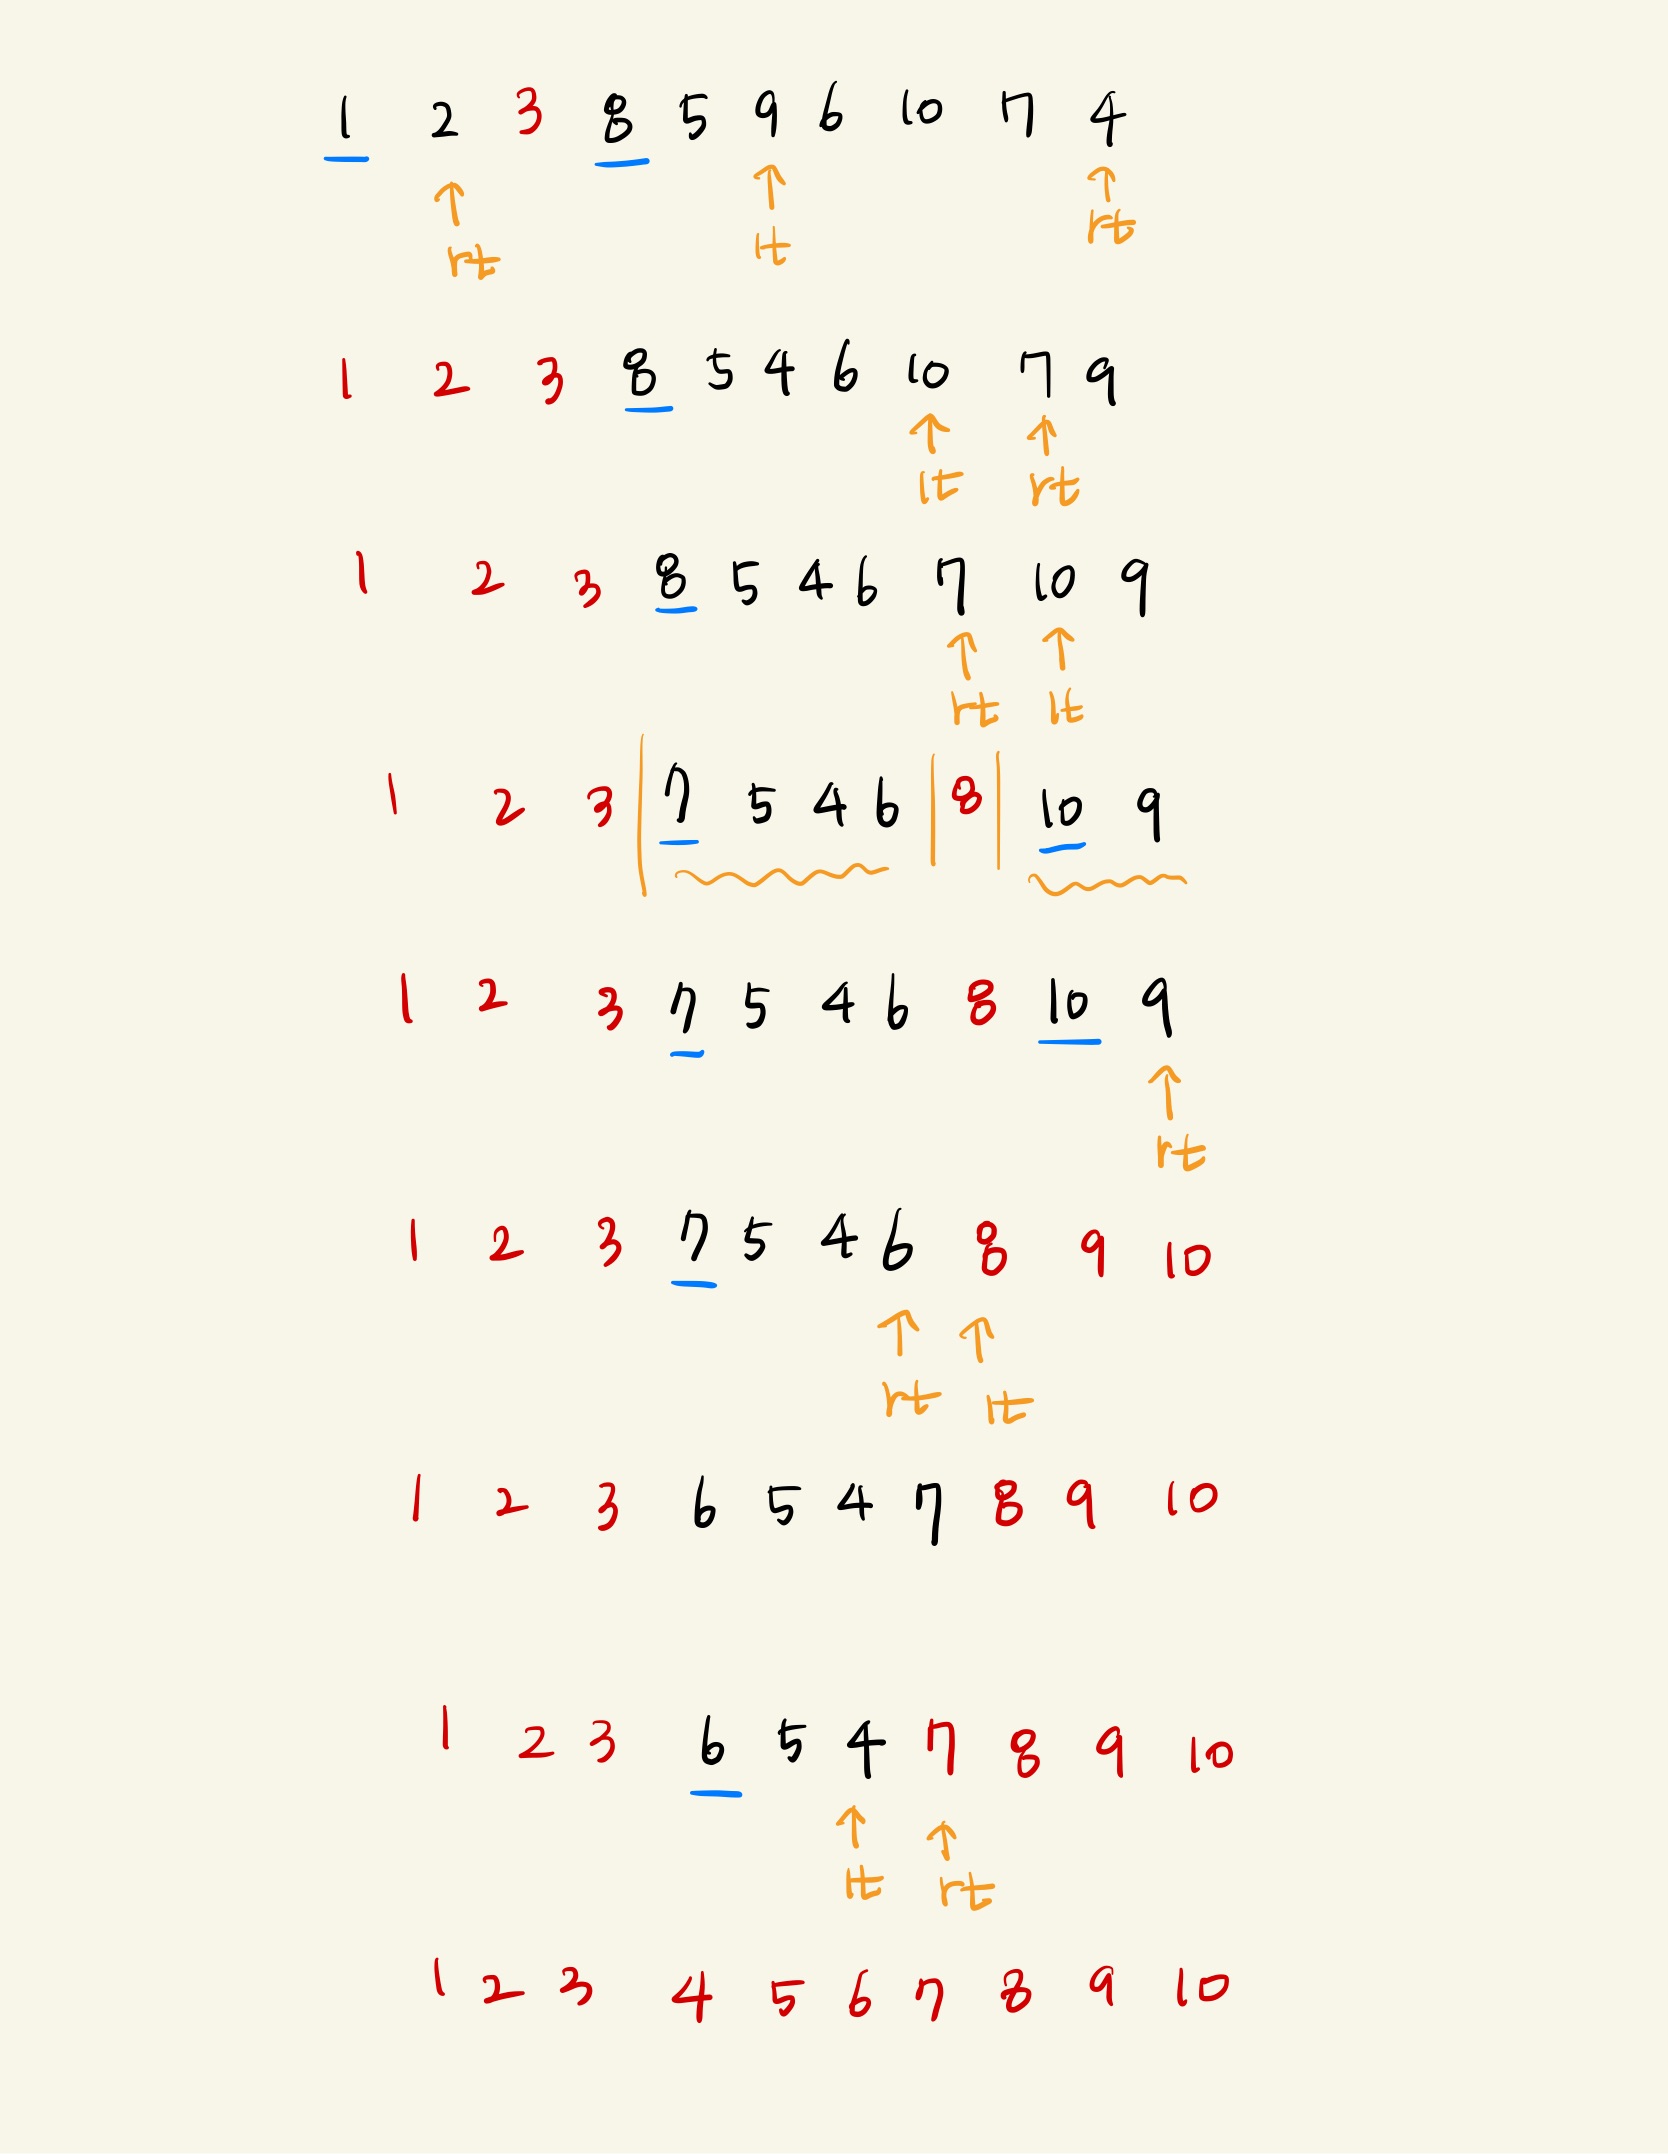 1 2 3 8 5 9 6 10 7 4
rt lt rt
1 2 3 8 5 4 6 10 7 9
lt rt
1 2 3 8 5 4 6 7 10 9
rt lt
1 2 3 7 5 4 6 8 10 9
1 2 3 7 5 4 6 8 10 9
rt
1 2 3 7 5 4 6 8 9 10
rt lt
1 2 3 6 5 4 7 8 9 10
1 2 3 6 5 4 7 8 9 10
lt rt
1 2 3 4 5 6 7 8 9 10